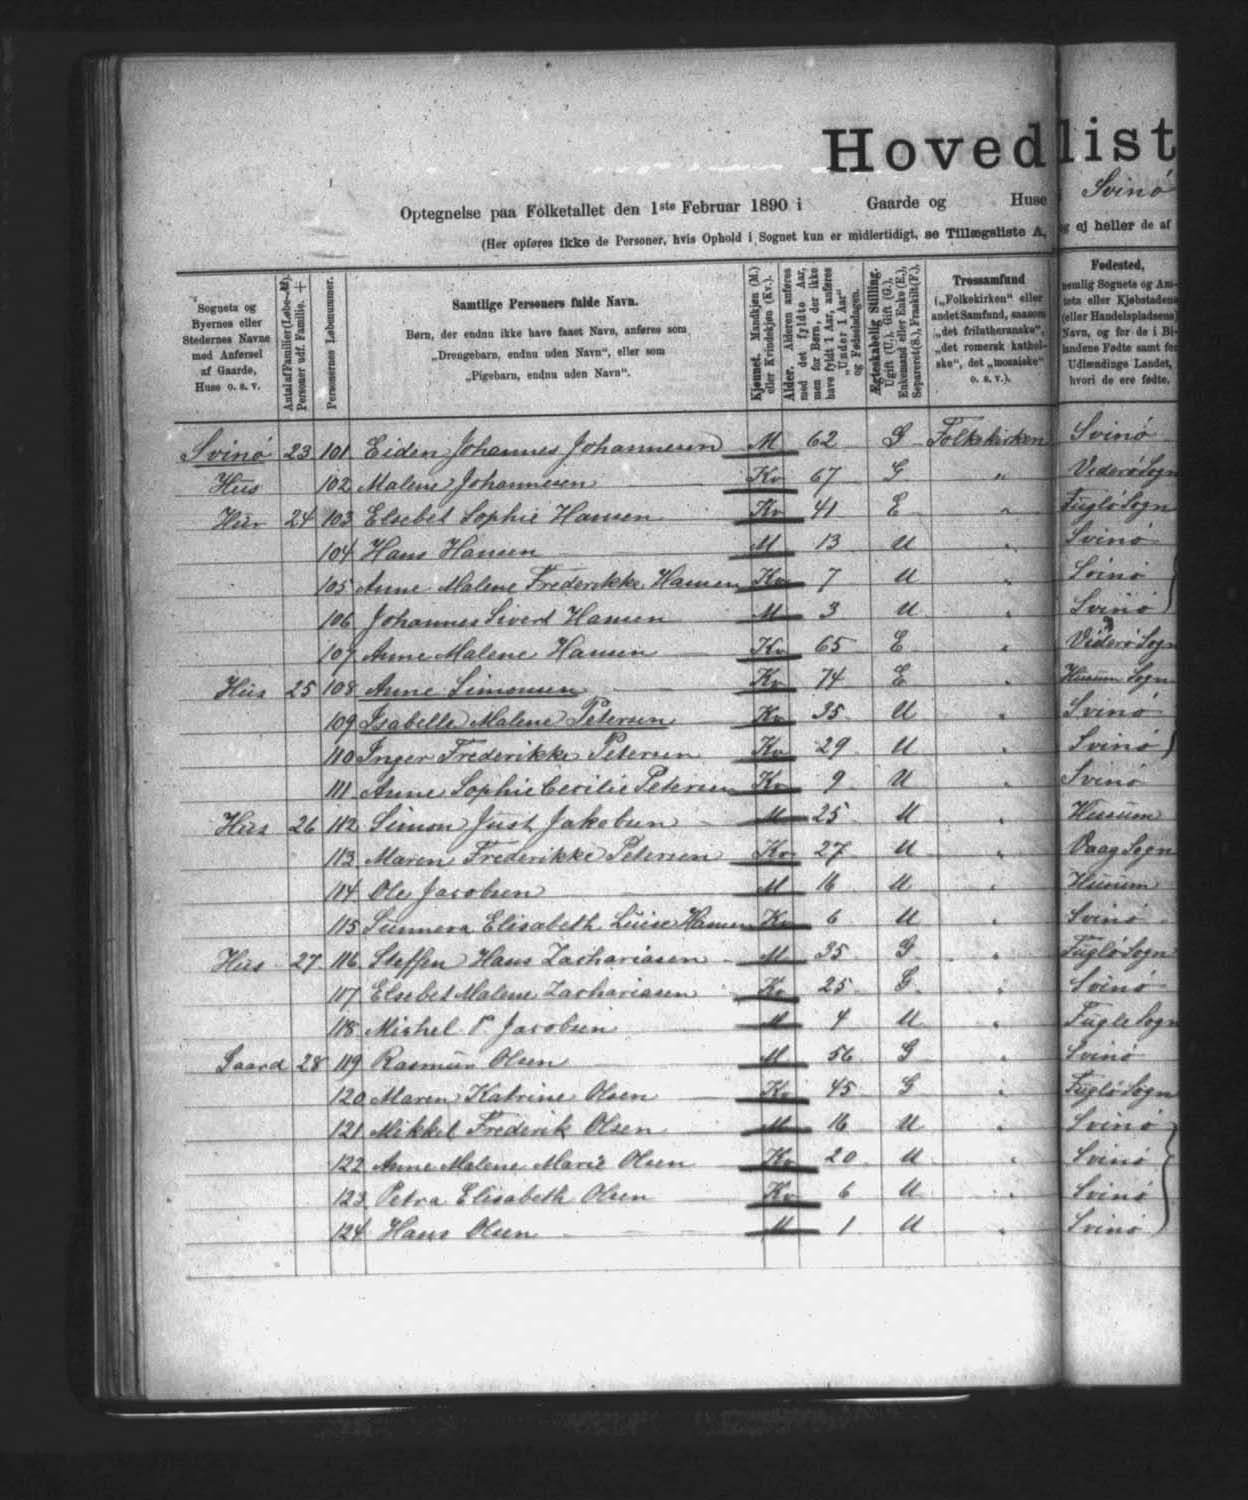 Hovedlist
Optegnelse paa Folketallet den 1ste Februar 1890 i Gaarde og Huse Svinø
(Her opføres ikke de Personer, hvis Ophold i Sognet kun er midlertidigt, se Tillægsliste A, og ej heller de af
Sognets og Byernes eller Stedernes Navne med Anførsel af Gaarde, Huse o. s. v.
Antal af Familier (Løbe-№). Personer udf. Familie. +
Personernes Løbenummer.
Samtlige Personers fulde Navn.
Børn, der endnu ikke have faaet Navn, anføres som
„Drengebarn, endnu uden Navn", eller som
„Pigebarn, endnu uden Navn".
Kjønnet. Mandkjøn (M.) eller Kvindekjøn (Kv.).
Alder. Alderen anføres med det fyldte Aar, men for Børn, der ikke have fyldt 1 Aar, anføres „Under 1 Aar" og Fødselsdagen.
Ægteskabelig Stilling. Ugift (U.), Gift (G.), Enkemand eller Enke (E.), Separeret (S.), Fraskilt (F.).
Trossamfund („Folkekirken" eller andet Samfund, saasom „det frilutheranske", „det romersk katholske", det „mosaiske" o. s. v.).
Fødested, nemlig Sognets og Amtets eller Kjøbstadens (eller Handelspladsens) Navn, og for de i Bilandene Fødte samt for Udlændinge Landet, hvori de ere fødte.
Svinø 23 101 Eiden Johannes Johannesen M 62 G Folkekirken Svinø
Hus 102 Malene Johannesen Kv 67 G " Viderø Sogn
Hus 24 103 Elsebet Sophie Hansen Kv 41 E " Fuglø Sogn
104 Hans Hansen M 13 U " Svinø
105 Anne Malene Frederikke Hansen Kv 7 U " Svinø
106 Johannes Sivert Hansen M 3 U " Svinø
107 Anne Malene Hansen Kv 65 E " Viderø Sogn
Hus 25 108 Anne Simonsen Kv 74 E " Husum Sogn
109 Isabelle Malene Petersen Kv 35 U " Svinø
110 Inger Frederikke Petersen Kv 29 U " Svinø
111 Anne Sophie Cecilie Petersen Kv 9 U " Svinø
Hus 26 112 Simon Just Jakobsen M 25 U " Husum
113 Maren Frederikke Petersen Kv 27 U " Vaag Sogn
114 Ole Jacobsen M 16 U " Husum
115 Sunneva Elisabeth Luise Hansen Kv 6 U " Svinø
Hus 27 116 Steffen Hans Zachariasen M 35 G " Fuglø Sogn
117 Elsebet Malene Zachariasen Kv 25 G " Svinø
118 Michel P. Jacobsen M 4 U " Fugle Sogn
Gaard 28 119 Rasmus Olsen M 56 G " Svinø
120 Maren Katrine Olsen Kv 45 G " Fuglø Sogn
121 Mikkel Frederik Olsen M 16 U " Svinø
122 Anne Malene Marie Olsen Kv 20 U " Svinø
123 Petra Elisabeth Olsen Kv 6 U " Svinø
124 Hans Olsen M 1 U " Svinø